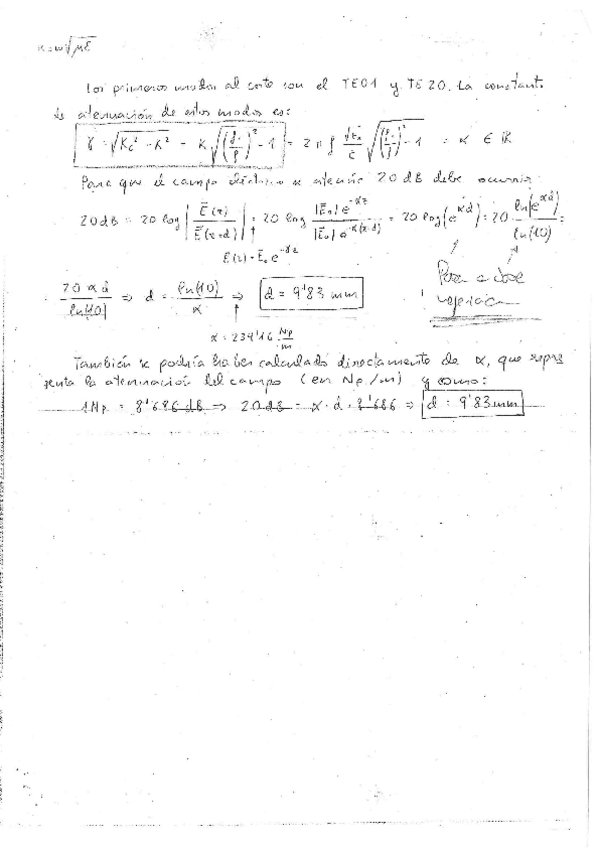 k = ω√με
Los primeros modos al corte son el TE01 y TE20. La constante
de atenuación de estos modos es:
γ = √(Kc² - K²) = K √((fc/f)² - 1) = 2πf √εr/c √((fc/f)² - 1) = α ∈ ℝ
Para que el campo eléctrico se atenúe 20 dB debe ocurrir:
20dB = 20 log |Ē(z)/Ē(z+d)| = 20 log |E₀|e^-αz / |E₀|e^-α(z+d) = 20 log(e^αd) = 20 ln(e^αd)/ln(10) =
E(z) = E₀ e^-γz
20 αd/ln(10) ⇒ d = ln(10)/α ⇒ d = 9'83 mm
α = 234'16 Np/m
También se podría haber calculado directamente de α, que repre
senta la atenuación del campo (en Np/m) y como:
1Np = 8'686 dB ⇒ 20dB = α · d · 8'686 ⇒ d = 9'83 mm